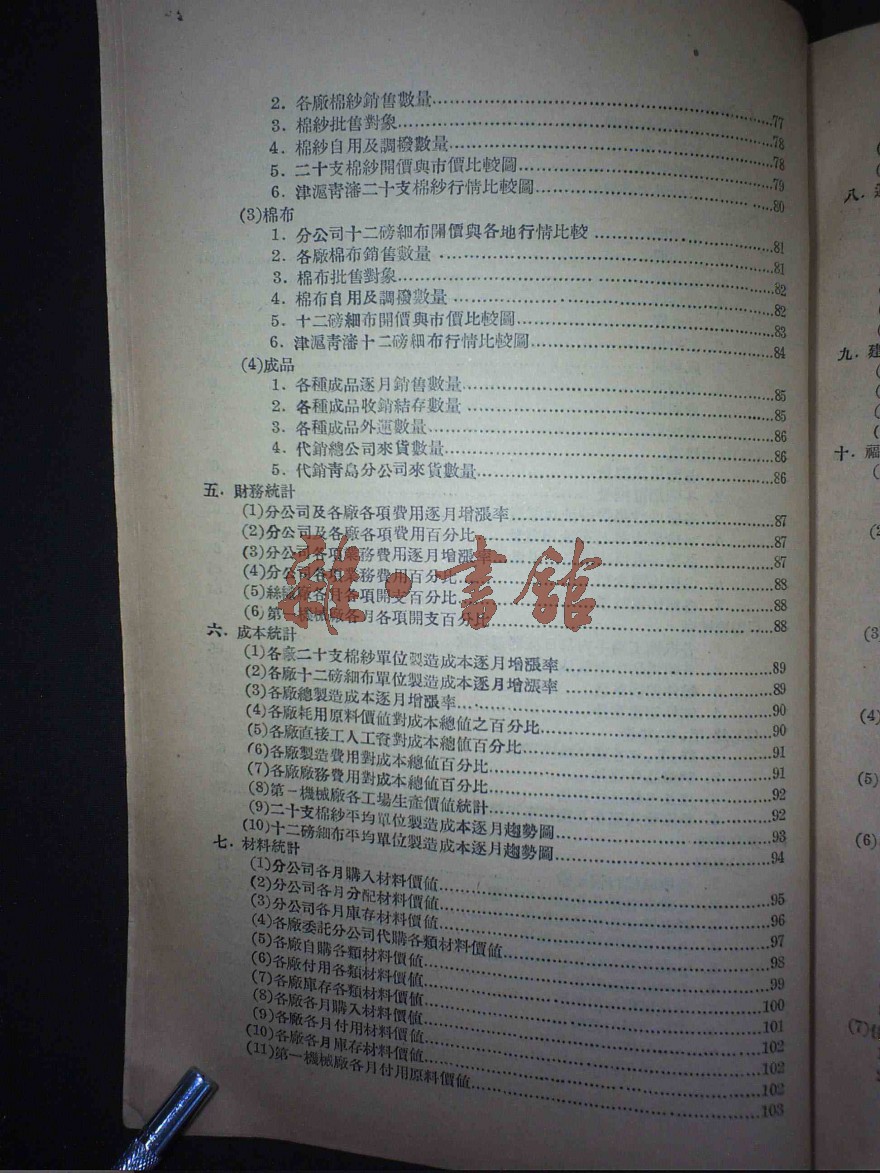 2. 各廠棉紗銷售數量……77
3. 棉紗批售對象……78
4. 棉紗自用及調撥數量……78
5. 二十支棉紗開價與市價比較圖……79
6. 津滬青瀋二十支棉紗行情比較圖……80
(3)棉布
1. 分公司十二磅細布開價與各地行情比較……81
2. 各廠棉布銷售數量……81
3. 棉布批售對象……82
4. 棉布自用及調撥數量……82
5. 十二磅細布開價與市價比較圖……83
6. 津滬青瀋十二磅細布行情比較圖……84
(4)成品
1. 各種成品逐月銷售數量……85
2. 各種成品收銷結存數量……85
3. 各種成品外運數量……86
4. 代銷總公司來貨數量……86
5. 代銷青島分公司來貨數量……86
五. 財務統計
(1)分公司及各廠各項費用逐月增漲率……87
(2)分公司及各廠各項費用百分比……87
(3)分公司各項業務費用逐月增漲率……87
(4)分公司各項業務費用百分比……88
(5)絲織廠各月各項開支百分比……88
(6)第一機械廠各月各項開支百分比……88
六. 成本統計
(1)各廠二十支棉紗單位製造成本逐月增漲率……89
(2)各廠十二磅細布單位製造成本逐月增漲率……89
(3)各廠總製造成本逐月增漲率……90
(4)各廠耗用原料價值對成本總值之百分比……90
(5)各廠直接工人工資對成本總值百分比……91
(6)各廠製造費用對成本總值百分比……91
(7)各廠廠務費用對成本總值百分比……92
(8)第一機械廠各工場生產價值統計……92
(9)二十支棉紗平均單位製造成本逐月趨勢圖……93
(10)十二磅細布平均單位製造成本逐月趨勢圖……94
七. 材料統計
(1)分公司各月購入材料價值……95
(2)分公司各月分配材料價值……96
(3)分公司各月庫存材料價值……97
(4)各廠委託分公司代購各類材料價值……98
(5)各廠自購各類材料價值……99
(6)各廠付用各類材料價值……100
(7)各廠庫存各類材料價值……101
(8)各廠各月購入材料價值……102
(9)各廠各月付用材料價值……102
(10)各廠各月庫存材料價值……102
(11)第一機械廠各月付用原料價值……103
雜·書館
八.
九. 建
十. 福
(3)
(4)
(5)
(6)
(7)